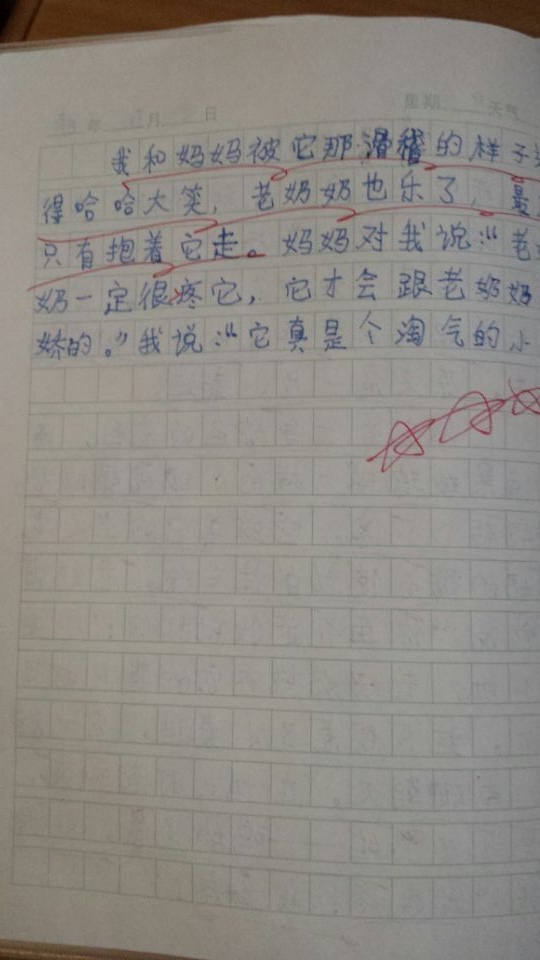 年 月 日 星期 天气
我和妈妈被它那滑稽的样子
得哈哈大笑，老奶奶也乐了，最
只有抱着它走。妈妈对我说：“老
奶一定很疼它，它才会跟老奶奶
娇的。”我说：“它真是个淘气的小